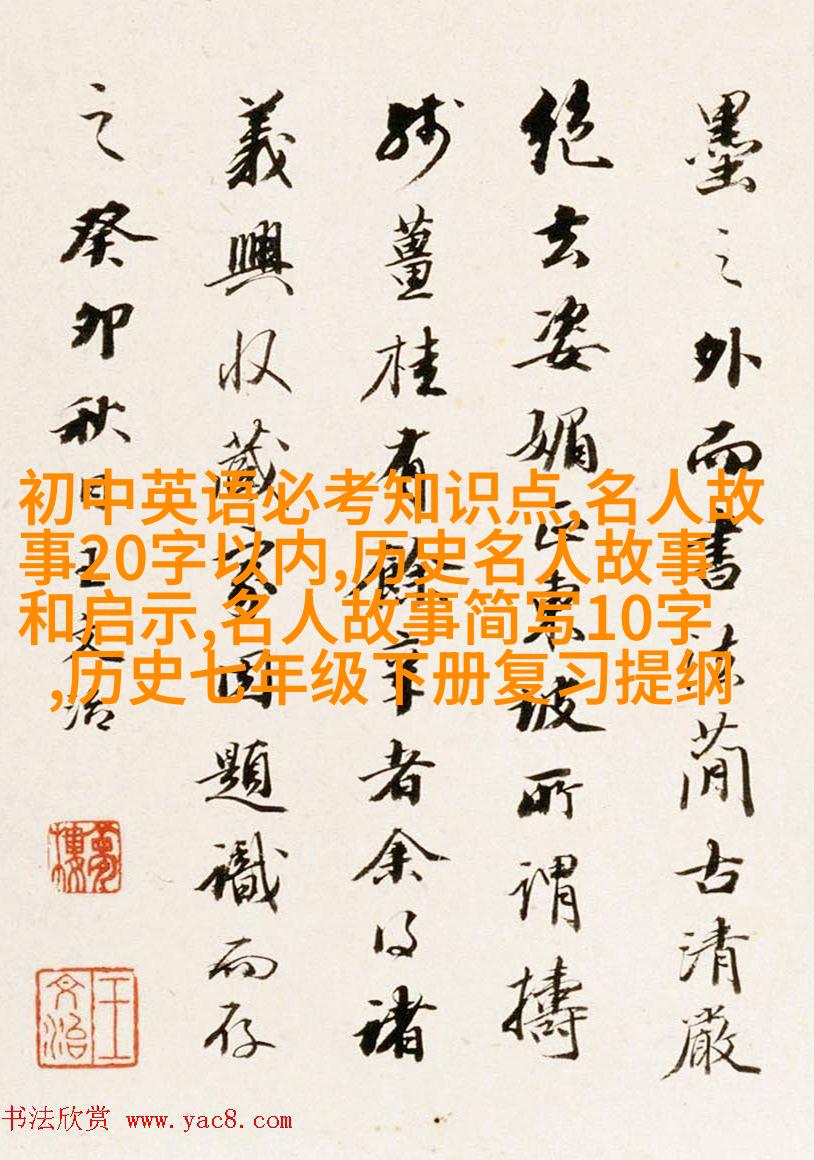 墨之外而書法簡古清嚴
絕去姿媚正東坡所謂擣
殘薑桂有餘辛者余得諸
義興收藏家因題識而存
之癸卯秋日王文治
夢樓
王文治
初中英语必考知识点,名人故
事20字以内,历史名人故事
和启示,名人故事简写10字
,历史七年级下册复习提纲
书法欣赏 www.yac8.com